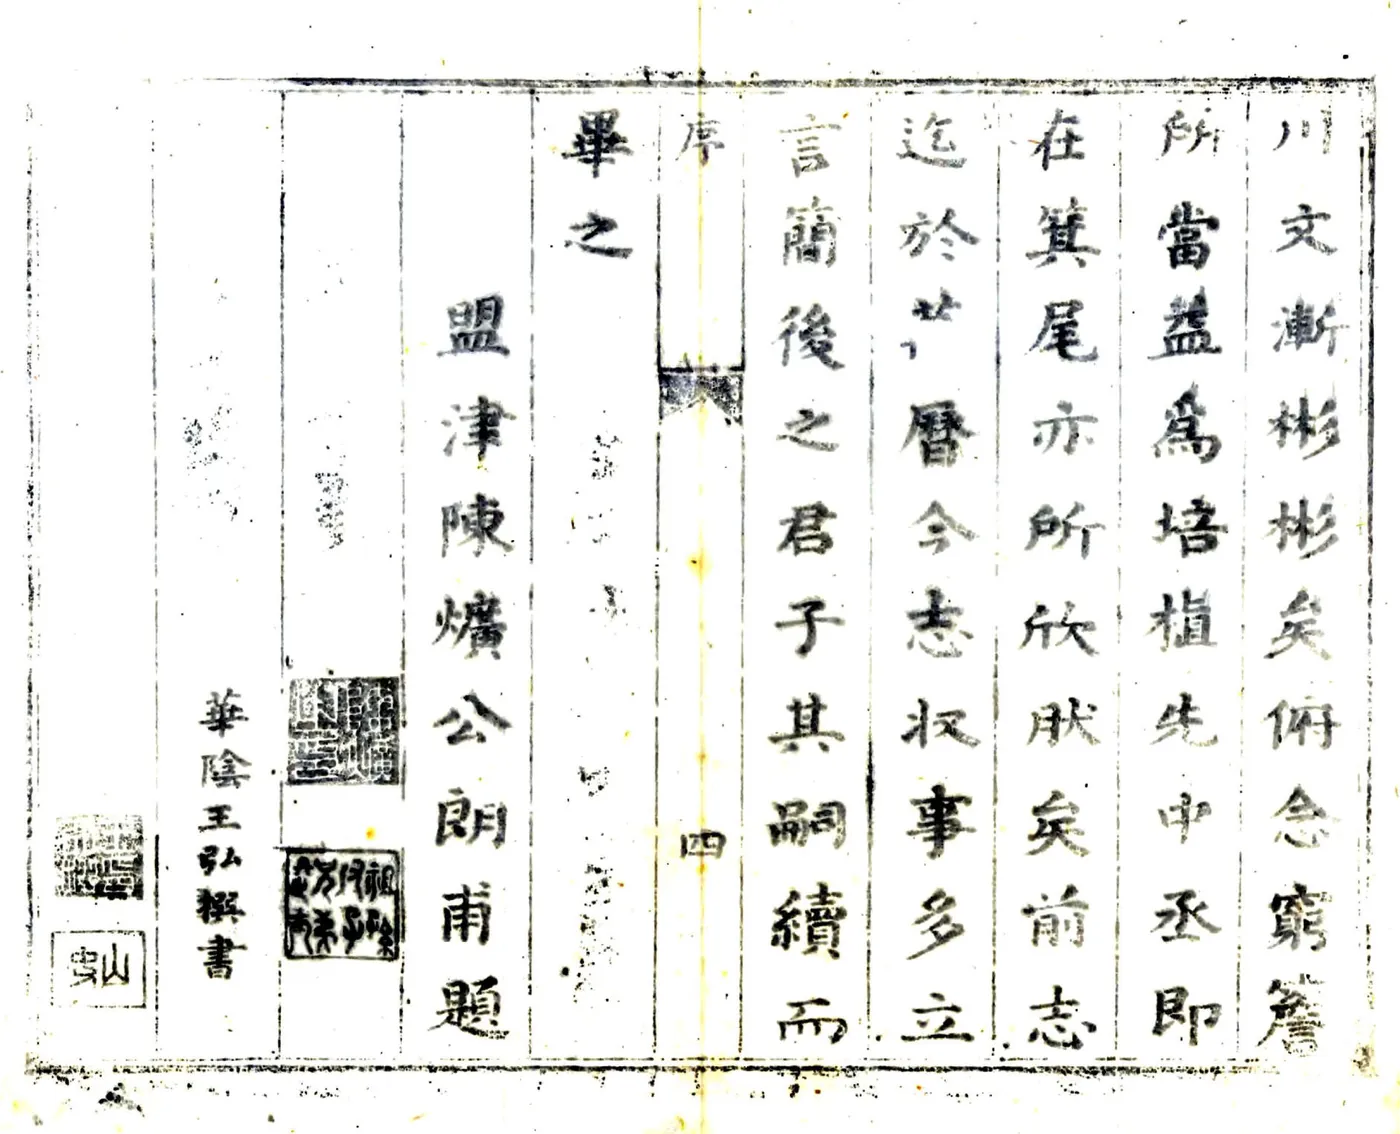 川文漸彬彬矣俯念窮簷
所當益爲培植先中丞即
在箕尾亦所欣肰矣前志
迄於曆今志収事多立
言簡後之君子其嗣續而
序
四
畢之
盟津陳爌公朗甫題
華陰王弘撰書
山史